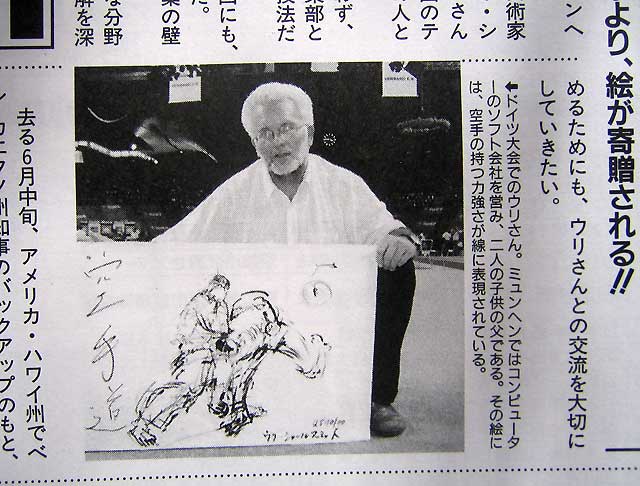 より、絵が寄贈される!!
めるためにも、ウリさんとの交流を大切に
していきたい。
←ドイツ大会でのウリさん。ミュンヘンではコンピュータ
ーのソフト会社を営み、二人の子供の父である。その絵に
は、空手の持つ力強さが線に表現されている。
ンへ
術家
・シ
さん
のテ
人と
わず、
部と
技法だ
にも、
た。
の壁
な分野
解を深
空手道
去る6月中旬、アメリカ・ハワイ州でベ
カエタノ州知事のバックアップのもと、